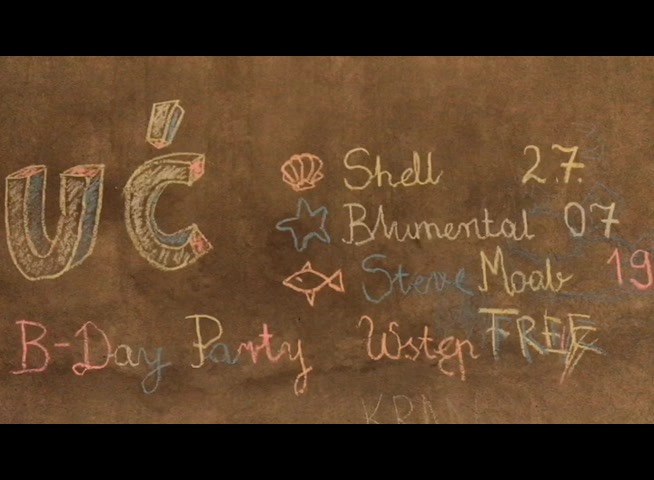 UĆ
Shell 27.
Blumental 07
Steve Moab 19
B-Day Party Wstęp FREE
KRA